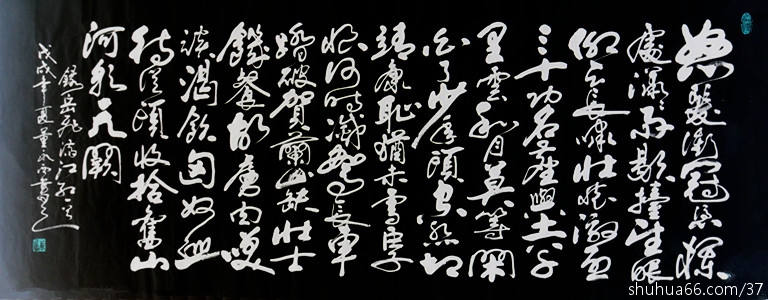 怒髮衝冠憑欄
處瀟瀟雨歇擡望眼
仰天長嘯壯懷激烈
三十功名塵與土八千
里雲和月莫等閑
白了少年頭空悲切
靖康耻猶未雪臣子
恨何時滅駕長車
踏破賀蘭山缺壯士
饑餐胡虜肉笑
談渴飲匈奴血
待從頭收拾舊山
河朝天闕
錄岳飛滿江紅
戊戌年夏董永書
shuhua66.com/37